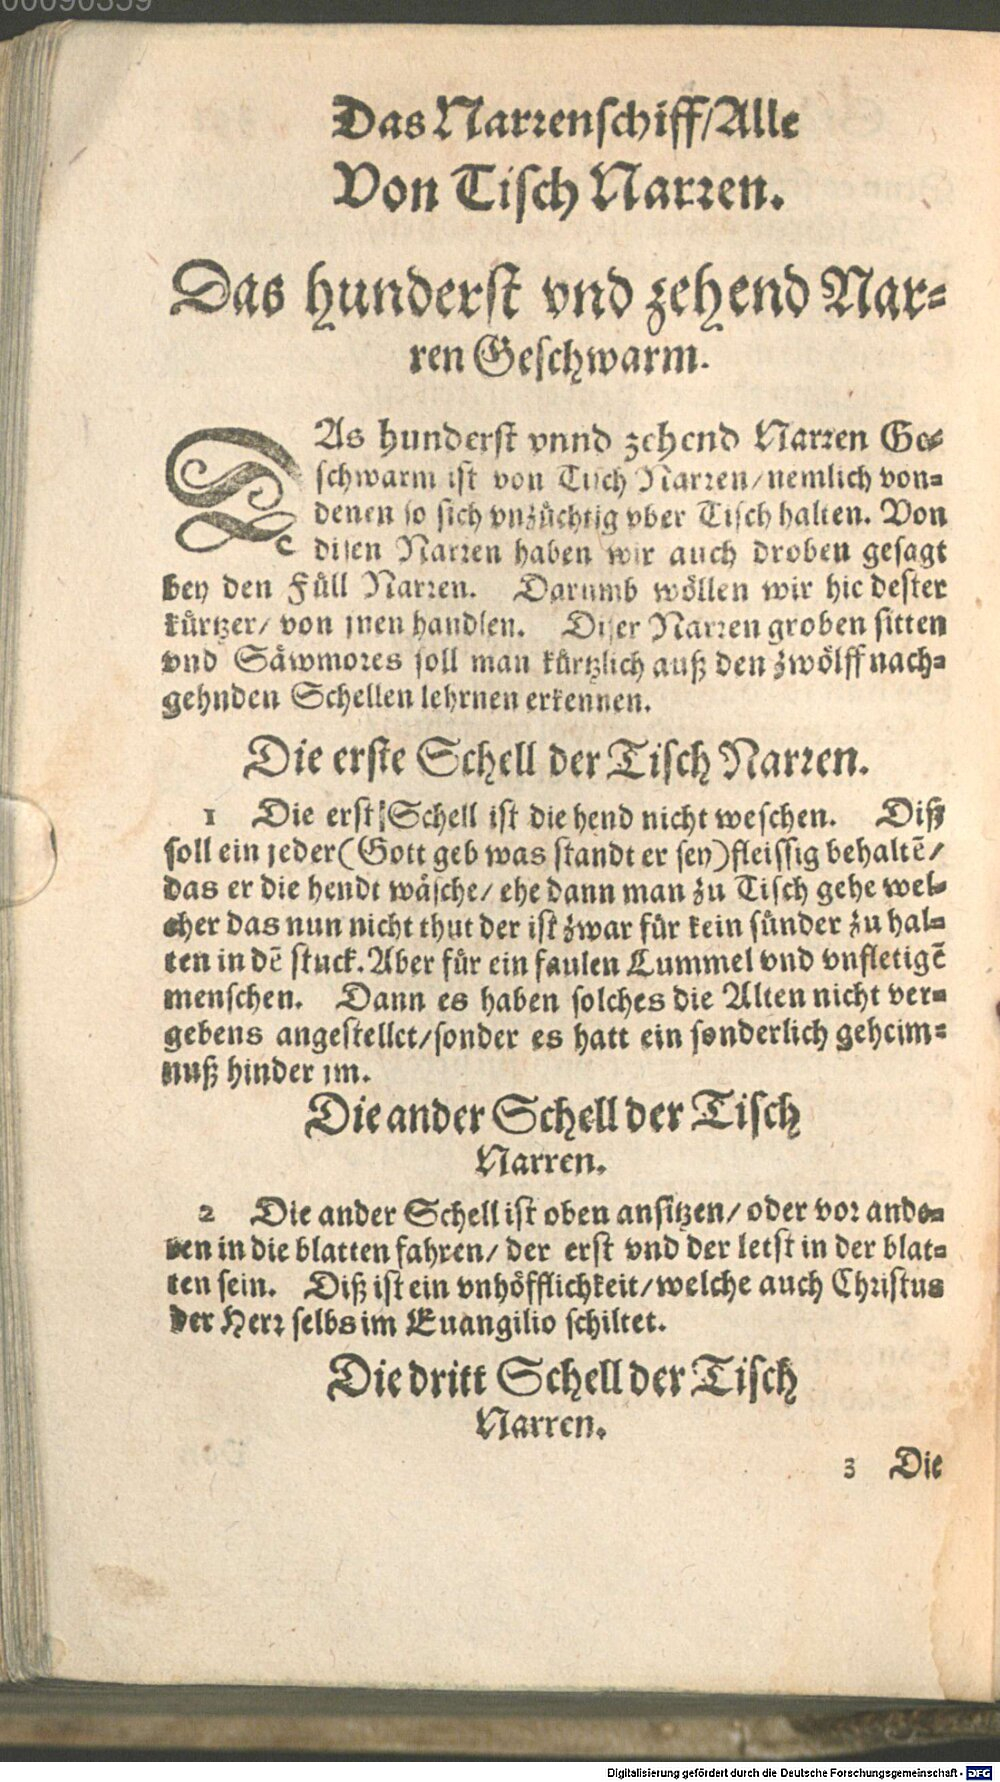 00090359
Das Narrenschiff/Alle
Von Tisch Narren.
Das hunderst vnd zehend Nar-
ren Geschwarm.
DAs hunderst vnnd zehend Narren Ge-
schwarm ist von Tisch Narren/nemlich von-
denen so sich vnzüchtig vber Tisch halten. Von
disen Narren haben wir auch droben gesagt
bey den Füll Narren. Darumb wöllen wir hie dester
kürtzer/ von jnen handlen. Diser Narren groben sitten
vnd Säwmores soll man kürtzlich auß den zwölff nach-
gehnden Schellen lehrnen erkennen.
Die erste Schell der Tisch Narren.
1 Die erst Schell ist die hend nicht weschen. Diß
soll ein jeder(Gott geb was standt er sey)fleissig behaltẽ/
das er die hendt wäsche/ ehe dann man zu Tisch gehe wel-
cher das nun nicht thut der ist zwar für kein sünder zu hal-
ten in dẽ stuck. Aber für ein faulen Lummel vnd vnfletigẽ
menschen. Dann es haben solches die Alten nicht ver-
gebens angestellet/sonder es hatt ein sonderlich geheim-
nuß hinder jm.
Die ander Schell der Tisch
Narren.
2 Die ander Schell ist oben ansitzen/ oder vor ande-
ren in die blatten fahren/ der erst vnd der letst in der blat-
ten sein. Diß ist ein vnhöfflichkeit/welche auch Christus
der Herr selbs im Euangilio schiltet.
Die dritt Schell der Tisch
Narren.
3 Die
Digitalisierung gefördert durch die Deutsche Forschungsgemeinschaft - DFG